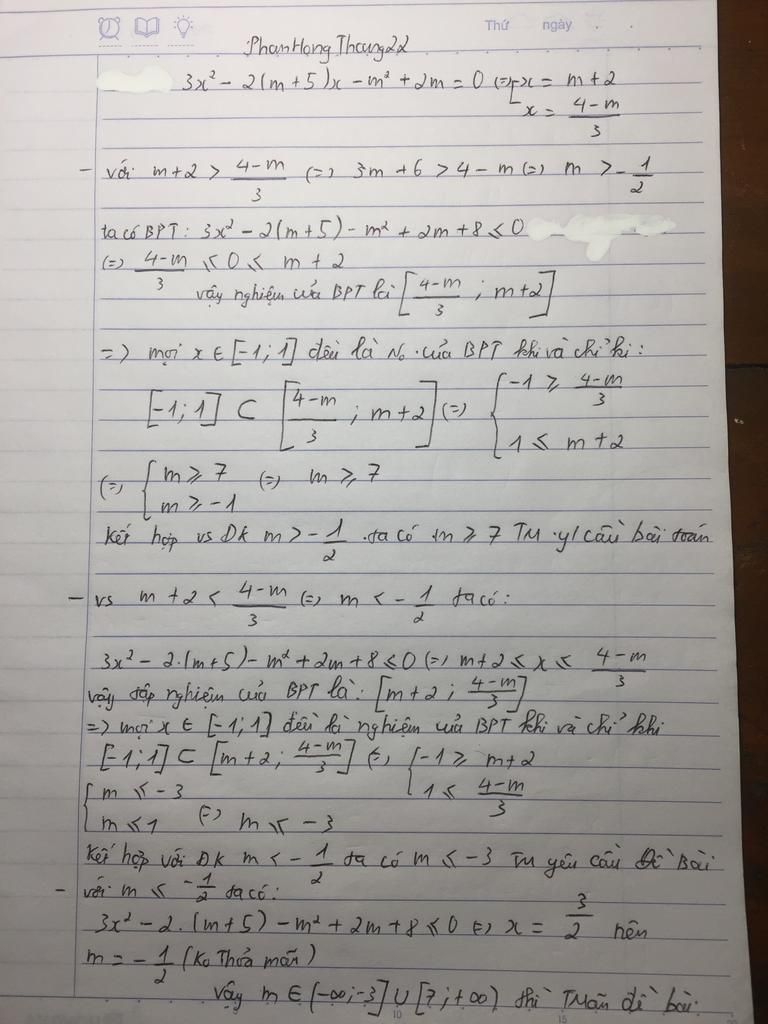 Thứ ngày
PhanHongThang22
3x² - 2(m+5)x - m² + 2m = 0 (=) [x = m+2
x = (4-m)/3
- với m+2 > (4-m)/3 (=) 3m+6 > 4-m (=) m > -1/2
ta có BPT: 3x² - 2(m+5) - m² + 2m + 8 ≤ 0
(=) (4-m)/3 ≤ 0 ≤ m+2
vậy nghiệm của BPT là [(4-m)/3 ; m+2]
=) mọi x ∈ [-1;1] đều là No của BPT khi và chỉ khi:
[-1;1] ⊂ [(4-m)/3 ; m+2] (=) { -1 ≥ (4-m)/3
1 ≤ m+2
(=) { m ≥ 7 (=) m ≥ 7
m ≥ -1
Kết hợp vs ĐK m > -1/2 ta có m ≥ 7 TM y/cầu bài toán
- vs m+2 < (4-m)/3 (=) m < -1/2 ta có:
3x² - 2.(m+5) - m² + 2m + 8 ≤ 0 (=) m+2 ≤ x ≤ (4-m)/3
vậy tập nghiệm của BPT là: [m+2 ; (4-m)/3]
=) mọi x ∈ [-1;1] đều là nghiệm của BPT khi và chỉ khi
[-1;1] ⊂ [m+2 ; (4-m)/3] (=) { -1 ≥ m+2
1 ≤ (4-m)/3
{ m ≤ -3
m ≤ 1 (=) m ≤ -3
Kết hợp với ĐK m < -1/2 ta có m ≤ -3 TM yêu cầu Đề Bài
- với m ≤ -1/2 ta có:
3x² - 2.(m+5) - m² + 2m + 8 ≤ 0 (=) x = 3/2 nên
m = -1/2 (Ko Thỏa mãn)
vậy m ∈ (-∞;-3] ∪ [7;+∞) thì TMãn đề bài.
10 15